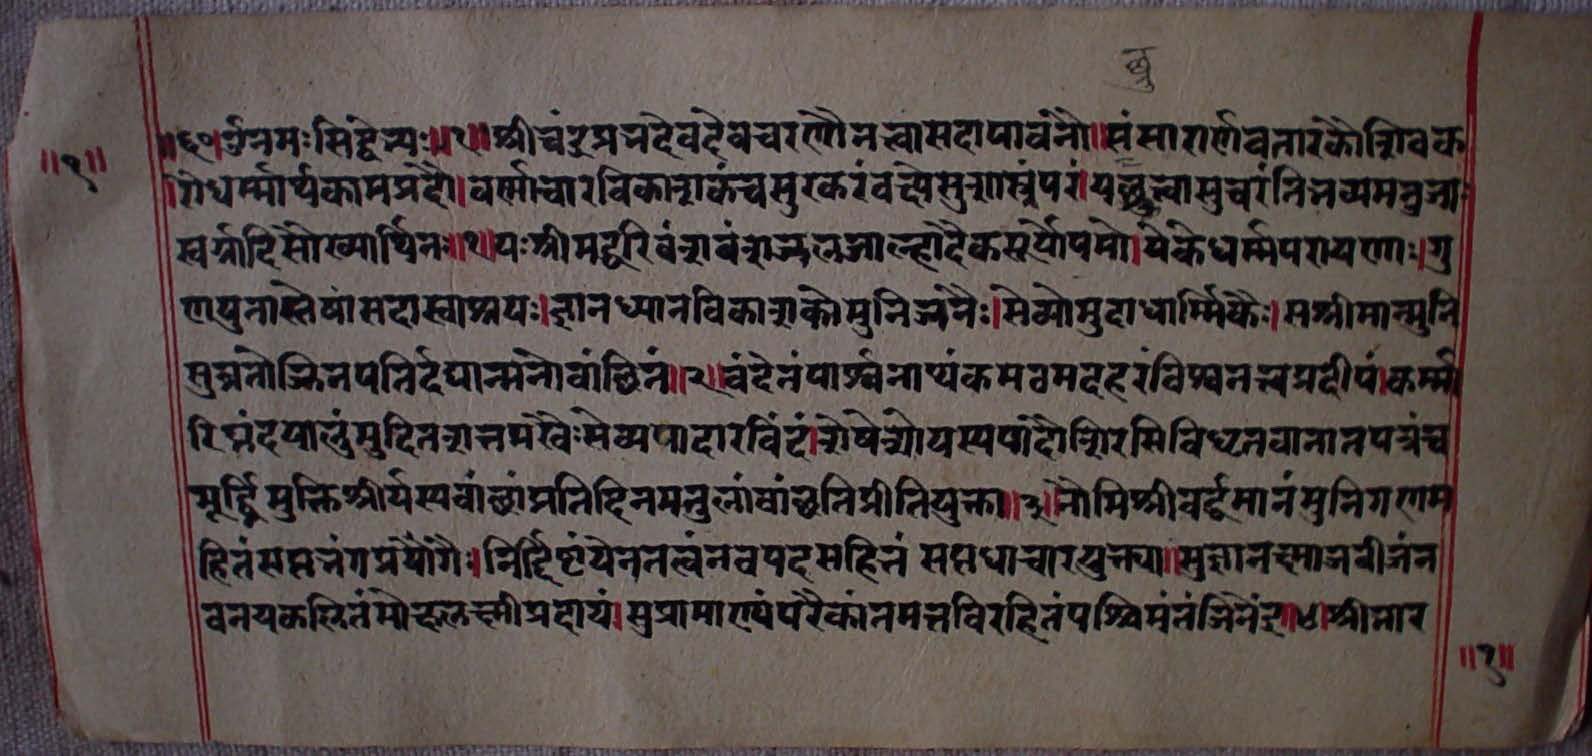 श्रु
॥१॥
॥६०॥ॐनमःसिद्धेभ्यः॥१॥श्रीचंद्रप्रभदेवदेवचरणौनत्वासदापावनौ॥संसारार्णवतारकौशिवक
रौधर्म्मार्थकामप्रदौ।वर्णाचारविकाशकंचसुरवकरंवक्ष्येसुशास्त्रंपरं।यछ्रुत्वासुचरंतिभव्यमनुजाः
स्वर्गादिसौख्यार्थिनः॥१॥यःश्रीमद्धरिवंशवंशजलजाल्हादैकसूर्योपमो।येकेधर्म्मपरायणाः।गु
णयुतास्तेषांसदास्वाश्रयः।ज्ञानध्यानविकाशकोमुनिजनैः।सेव्योमुदाधार्म्मिकैः।सश्रीमान्मुनि
सुव्रतोजिनपतिर्दद्यान्मनोवांछितं॥२॥वंदेतंपार्श्वनाथंकमठमदहरंविश्वतत्त्वप्रदीपं।कर्म्मा
रिघ्नंदयालुंमुदितशतमखैःसेव्यपादारविंदं।शेषेशोयस्यपादौशिरसिविधृतवानातपत्रंच
मूर्द्ध्निमुक्तिश्रीर्यस्यवांछांप्रतिदिनमतुलांवांछतिप्रीतियुक्ता॥३॥नौमिश्रीवर्द्धमानंमुनिगणम
हितंसप्तभंगप्रयोगैः।निर्दिष्टंयेनतत्वंनवपदसहितं सप्तधाचारयुक्त्या॥सुज्ञानक्ष्माजबीजंन
वनयकलितंमोक्षलक्ष्मीप्रदायं।सुप्रामाण्यंपरैकांतमतविरहितंपश्चिमंतंजिनेंद्रं॥४॥श्रीभार
॥१॥